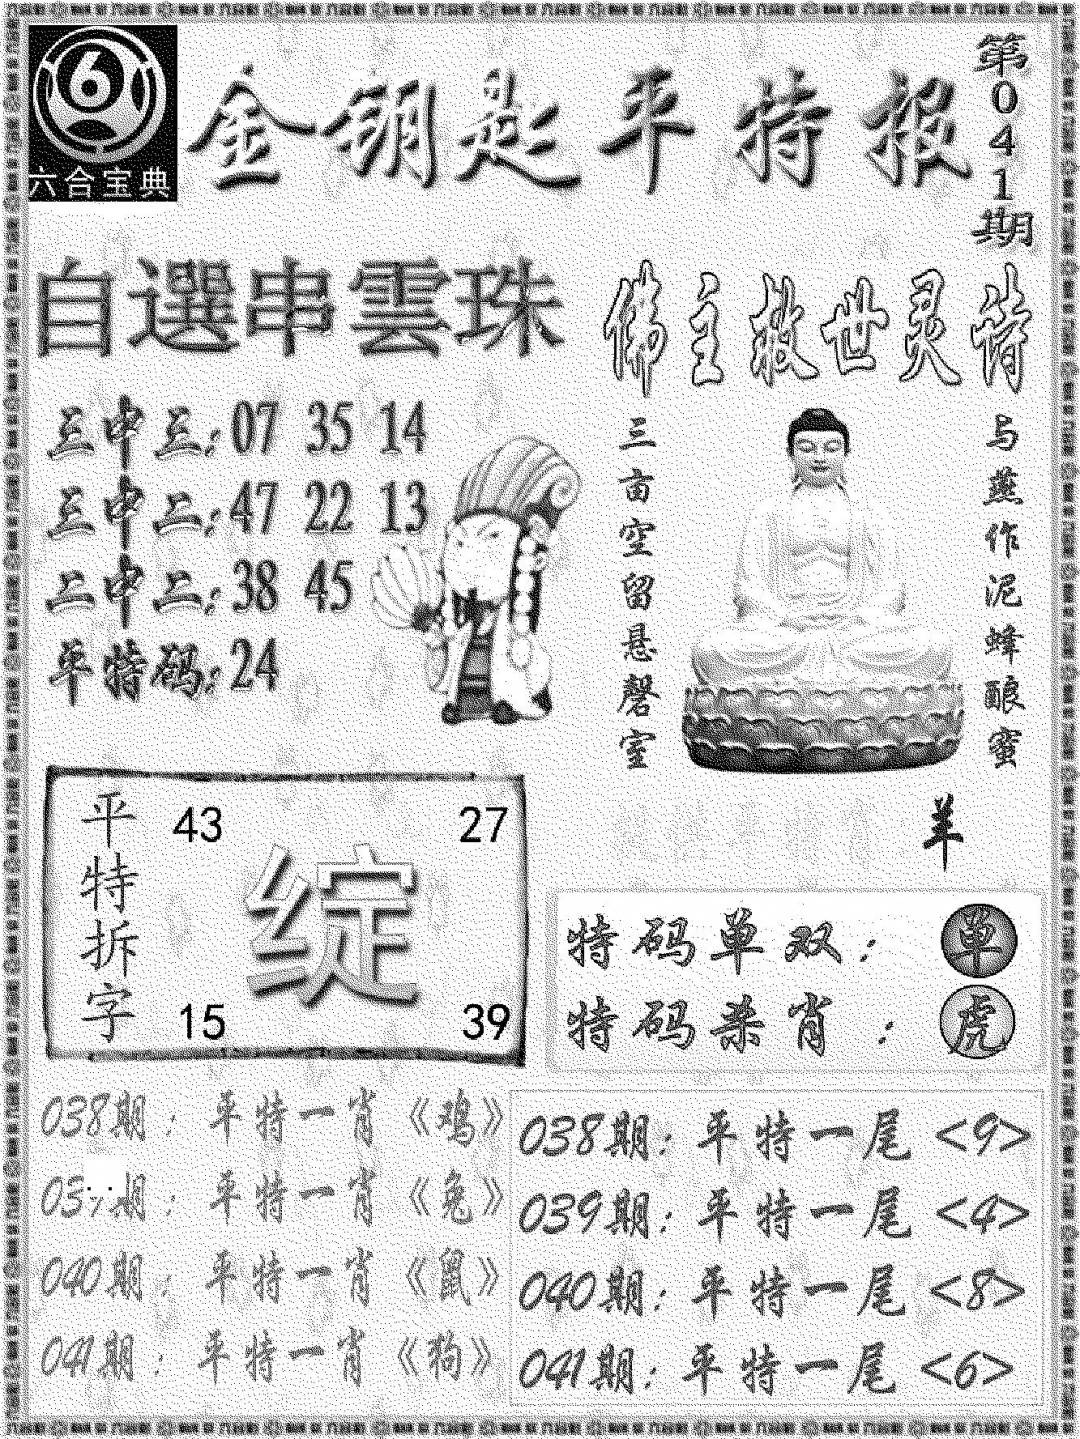 六合宝典
金钥匙平特报
第041期
自選串雲珠
三中三:07 35 14
三中二:47 22 13
二中二:38 45
平特码:24
佛主救世灵诗
与燕作泥蜂酿蜜
三亩空留悬磬室
羊
平特拆字
43 27
绽
15 39
特码单双: 单
特码杀肖: 虎
038期: 平特一肖《鸡》
039期: 平特一肖《兔》
040期: 平特一肖《鼠》
041期: 平特一肖《狗》
038期: 平特一尾<9>
039期: 平特一尾<4>
040期: 平特一尾<8>
041期: 平特一尾<6>